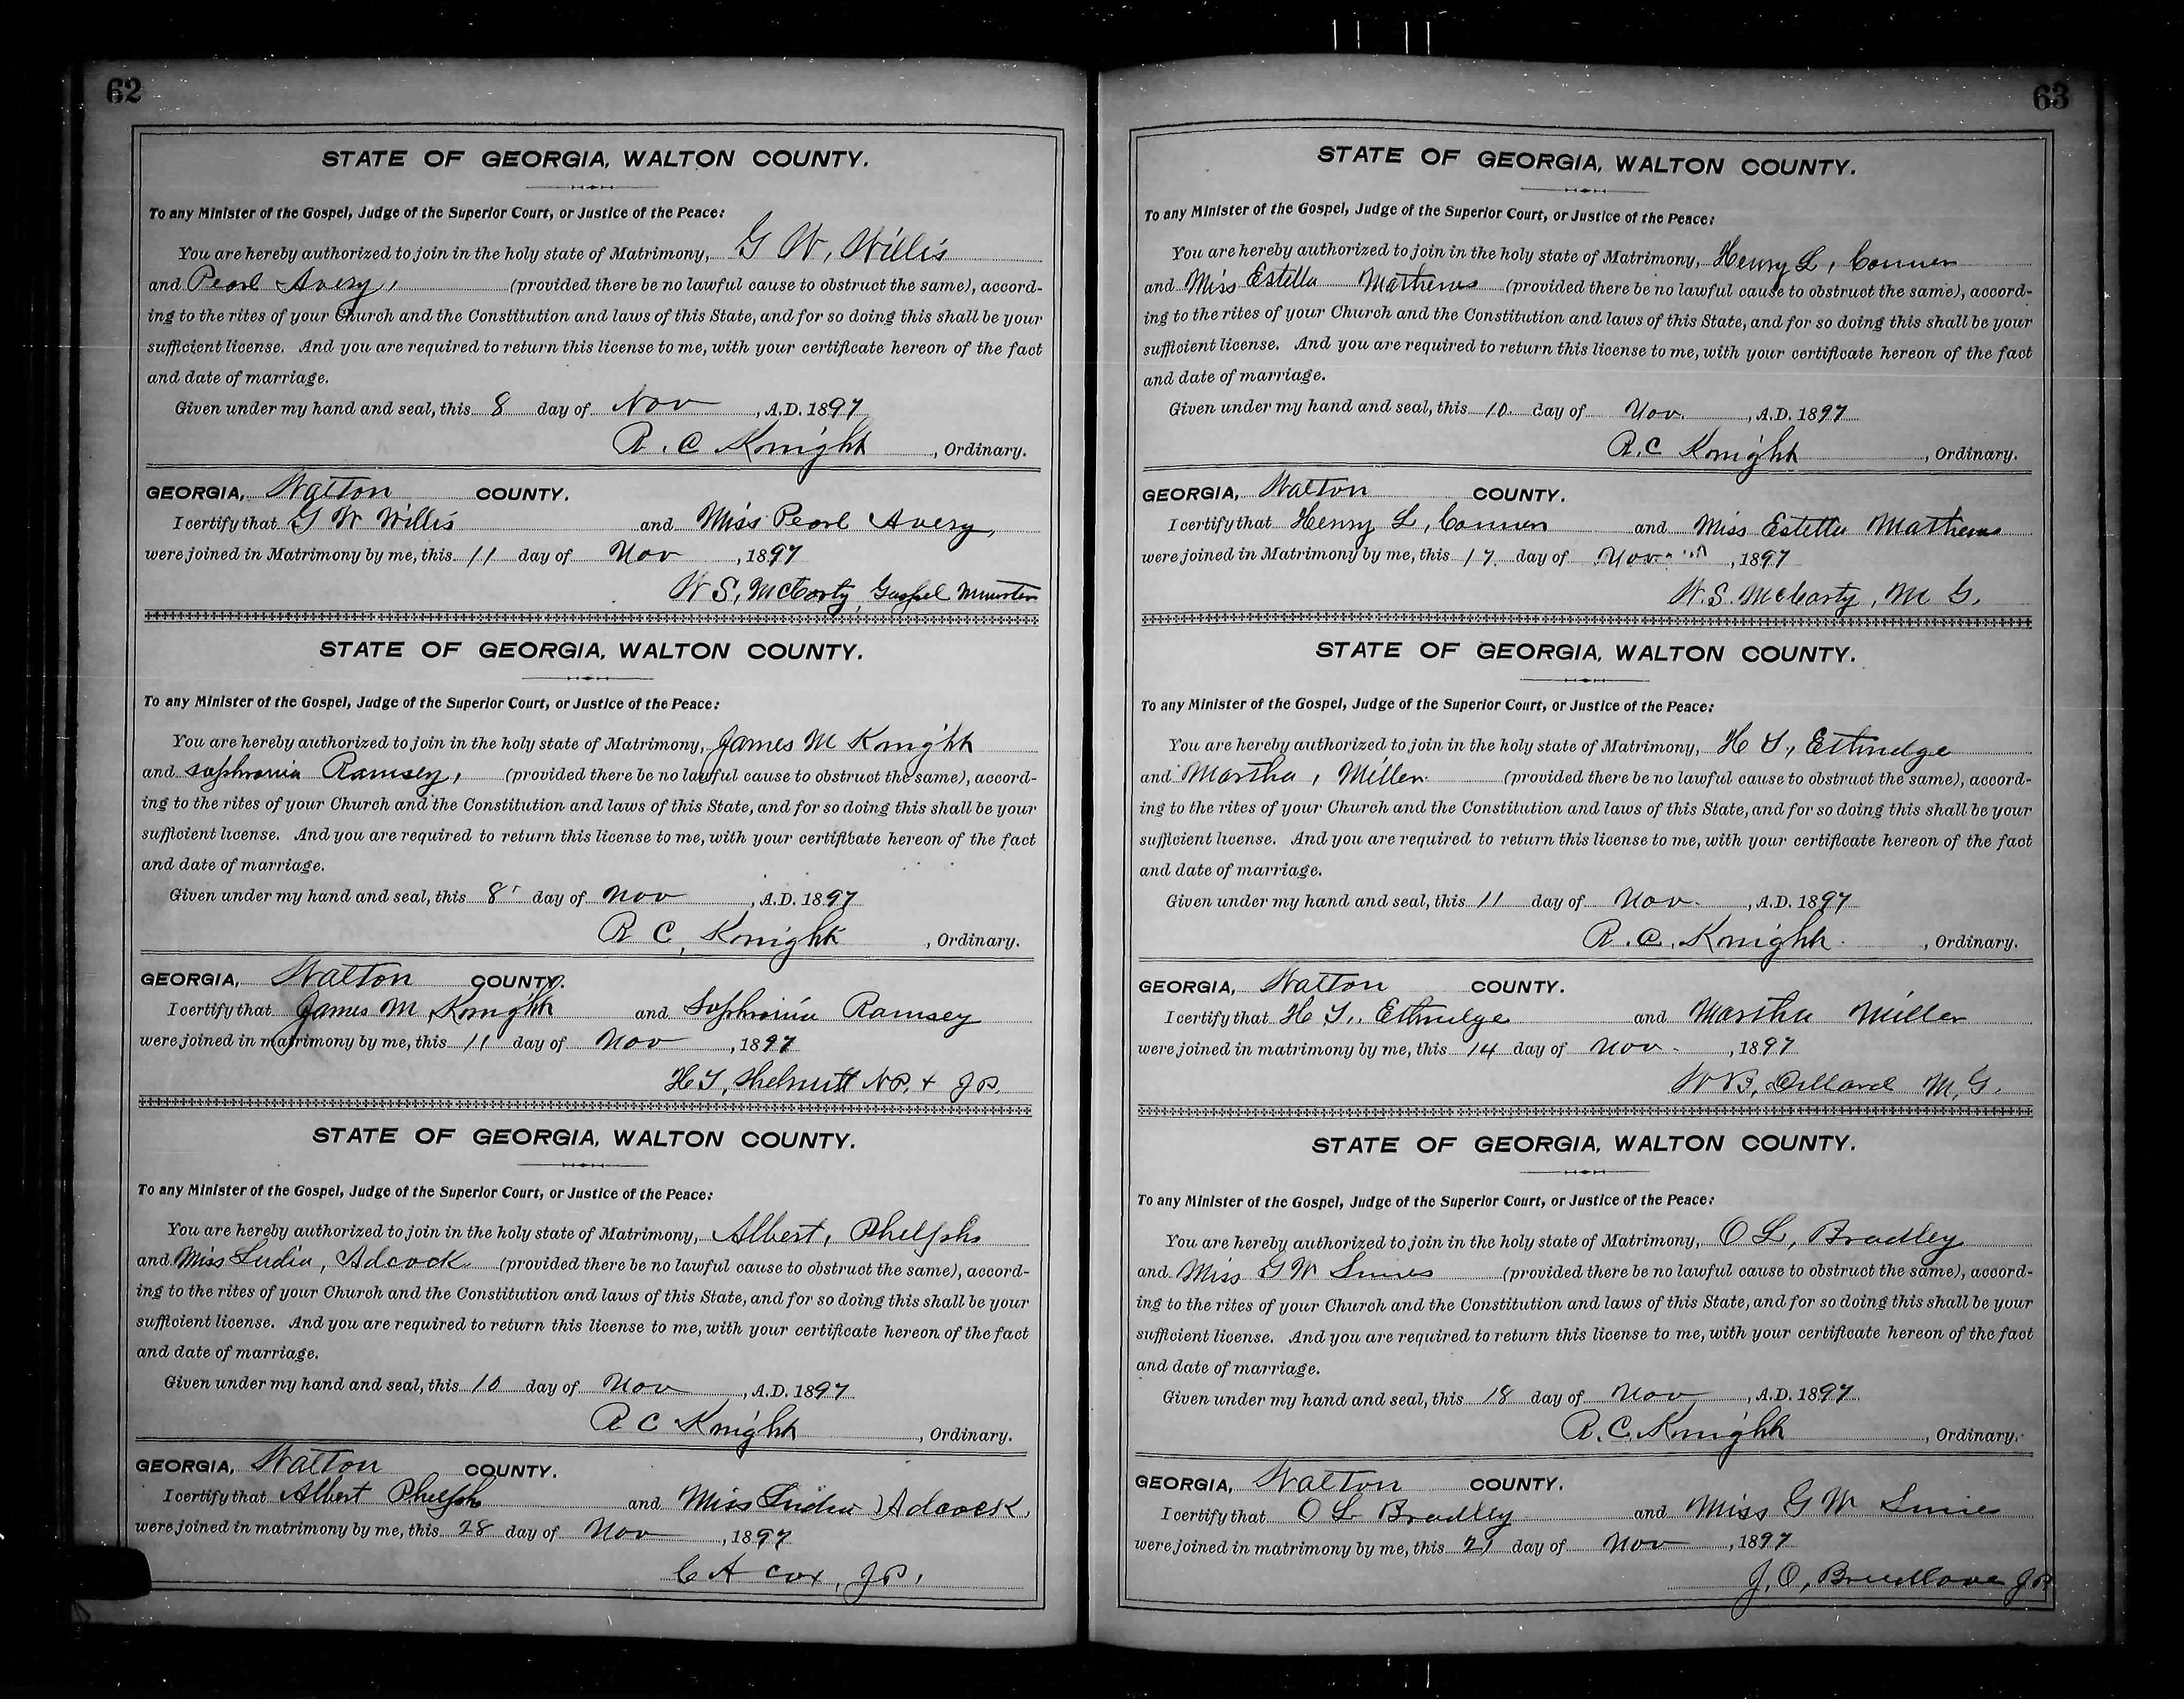 62
STATE OF GEORGIA, WALTON COUNTY.
To any Minister of the Gospel, Judge of the Superior Court, or Justice of the Peace:
You are hereby authorized to join in the holy state of Matrimony, G W, Willis
and Pearl Avery, (provided there be no lawful cause to obstruct the same), accord-
ing to the rites of your Church and the Constitution and laws of this State, and for so doing this shall be your
sufficient license. And you are required to return this license to me, with your certificate hereon of the fact
and date of marriage.
Given under my hand and seal, this 8 day of Nov, A.D. 1897
R. C Knight, Ordinary.
GEORGIA, Walton COUNTY.
I certify that G W Willis and Miss Pearl Avery,
were joined in Matrimony by me, this 11 day of Nov, 1897
W S, McCarty, Gospel Minister
STATE OF GEORGIA, WALTON COUNTY.
To any Minister of the Gospel, Judge of the Superior Court, or Justice of the Peace:
You are hereby authorized to join in the holy state of Matrimony, James M Knight
and Sophronia Ramsey, (provided there be no lawful cause to obstruct the same), accord-
ing to the rites of your Church and the Constitution and laws of this State, and for so doing this shall be your
sufficient license. And you are required to return this license to me, with your certificate hereon of the fact
and date of marriage.
Given under my hand and seal, this 8 day of Nov, A.D. 1897
R C, Knight, Ordinary.
GEORGIA, Walton COUNTY.
I certify that James M Knight and Sophronia Ramsey
were joined in matrimony by me, this 11 day of Nov, 1897
H T, Shelnutt N.P. + J P.
STATE OF GEORGIA, WALTON COUNTY.
To any Minister of the Gospel, Judge of the Superior Court, or Justice of the Peace:
You are hereby authorized to join in the holy state of Matrimony, Albert, Phelphs
and Miss Ludia, Adcock (provided there be no lawful cause to obstruct the same), accord-
ing to the rites of your Church and the Constitution and laws of this State, and for so doing this shall be your
sufficient license. And you are required to return this license to me, with your certificate hereon of the fact
and date of marriage.
Given under my hand and seal, this 10 day of Nov, A.D. 1897
R C Knight, Ordinary.
GEORGIA, Walton COUNTY.
I certify that Albert Phelphs and Miss Ludia Adcock,
were joined in matrimony by me, this 28 day of Nov, 1897
C A Cox, J P,
63
STATE OF GEORGIA, WALTON COUNTY.
To any Minister of the Gospel, Judge of the Superior Court, or Justice of the Peace:
You are hereby authorized to join in the holy state of Matrimony, Henry L, Conner
and Miss Estella Mathews (provided there be no lawful cause to obstruct the same), accord-
ing to the rites of your Church and the Constitution and laws of this State, and for so doing this shall be your
sufficient license. And you are required to return this license to me, with your certificate hereon of the fact
and date of marriage.
Given under my hand and seal, this 10. day of Nov., A.D. 1897
R.C Knight, Ordinary.
GEORGIA, Walton COUNTY.
I certify that Henry L, Conner and Miss Estella Mathews
were joined in Matrimony by me, this 17. day of Nov, 1897
W.S. McCarty, M G.
STATE OF GEORGIA, WALTON COUNTY.
To any Minister of the Gospel, Judge of the Superior Court, or Justice of the Peace:
You are hereby authorized to join in the holy state of Matrimony, H T, Ethridge
and Martha, Miller (provided there be no lawful cause to obstruct the same), accord-
ing to the rites of your Church and the Constitution and laws of this State, and for so doing this shall be your
sufficient license. And you are required to return this license to me, with your certificate hereon of the fact
and date of marriage.
Given under my hand and seal, this 11 day of Nov., A.D. 1897
R. C. Knight., Ordinary.
GEORGIA, Walton COUNTY.
I certify that H T, Ethridge and Martha Miller
were joined in matrimony by me, this 14 day of Nov, 1897
W B, Dillard M, G.
STATE OF GEORGIA, WALTON COUNTY.
To any Minister of the Gospel, Judge of the Superior Court, or Justice of the Peace:
You are hereby authorized to join in the holy state of Matrimony, O L, Bradley
and Miss G W (provided there be no lawful cause to obstruct the same), accord-
ing to the rites of your Church and the Constitution and laws of this State, and for so doing this shall be your
sufficient license. And you are required to return this license to me, with your certificate hereon of the fact
and date of marriage.
Given under my hand and seal, this 18 day of Nov, A.D. 1897
R. C. Knight, Ordinary.
GEORGIA, Walton COUNTY.
I certify that O L Bradley and Miss G W
were joined in matrimony by me, this 21 day of Nov, 1897
J, O, Breedlove J P